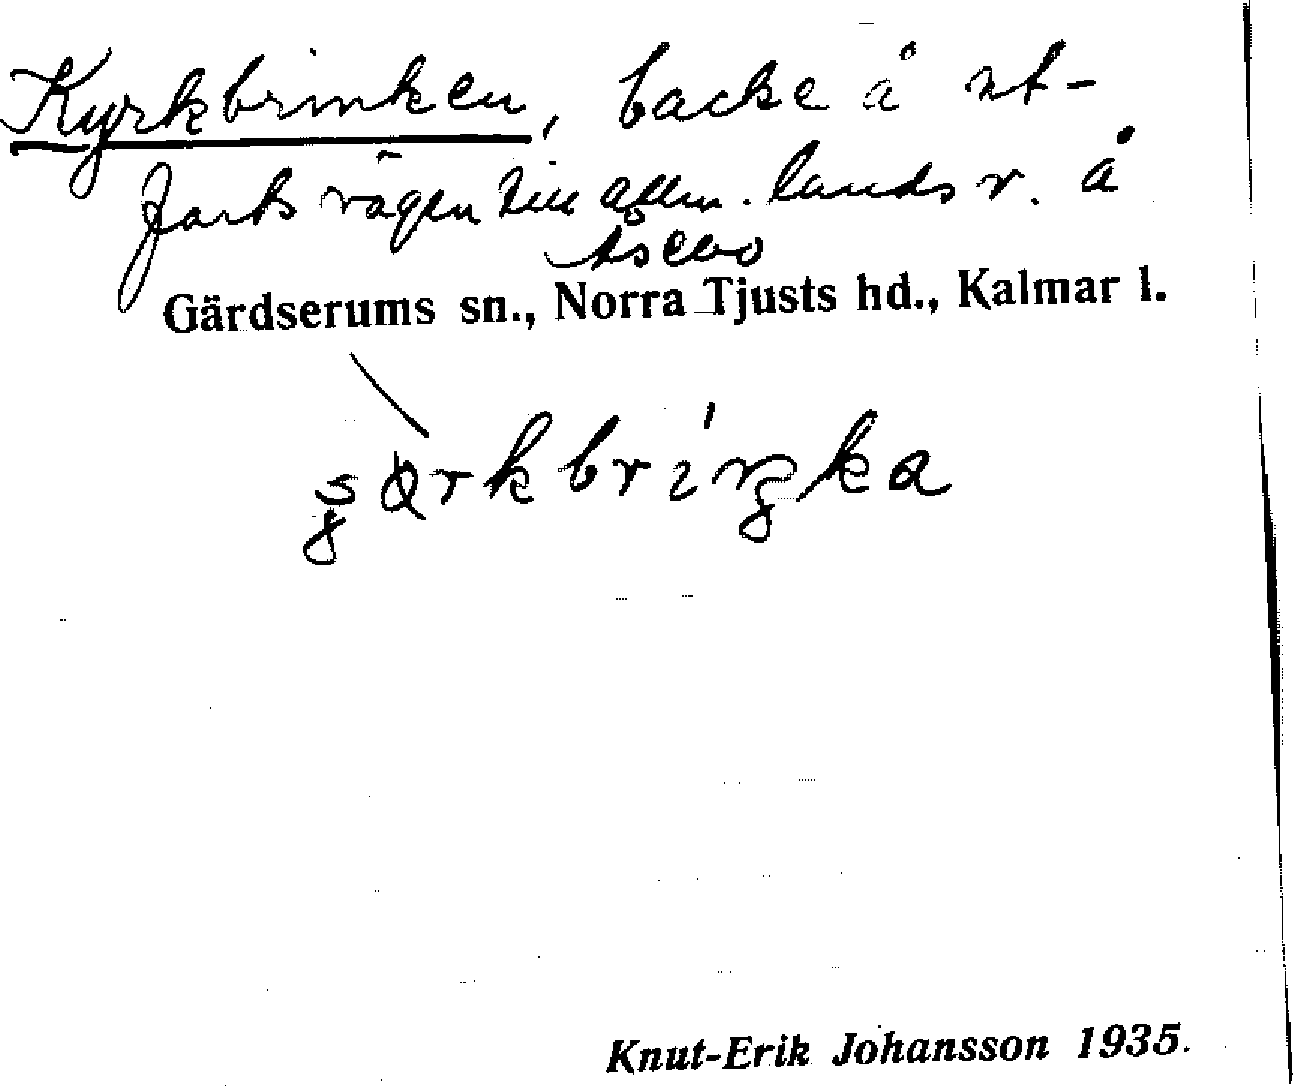 Kyrkbrinken, backe å ut-
farts vägen till allm. landsv. å
Åsebo
Gärdserums sn., Norra Tjusts hd., Kalmar l.
Knut-Erik Johansson 1935.